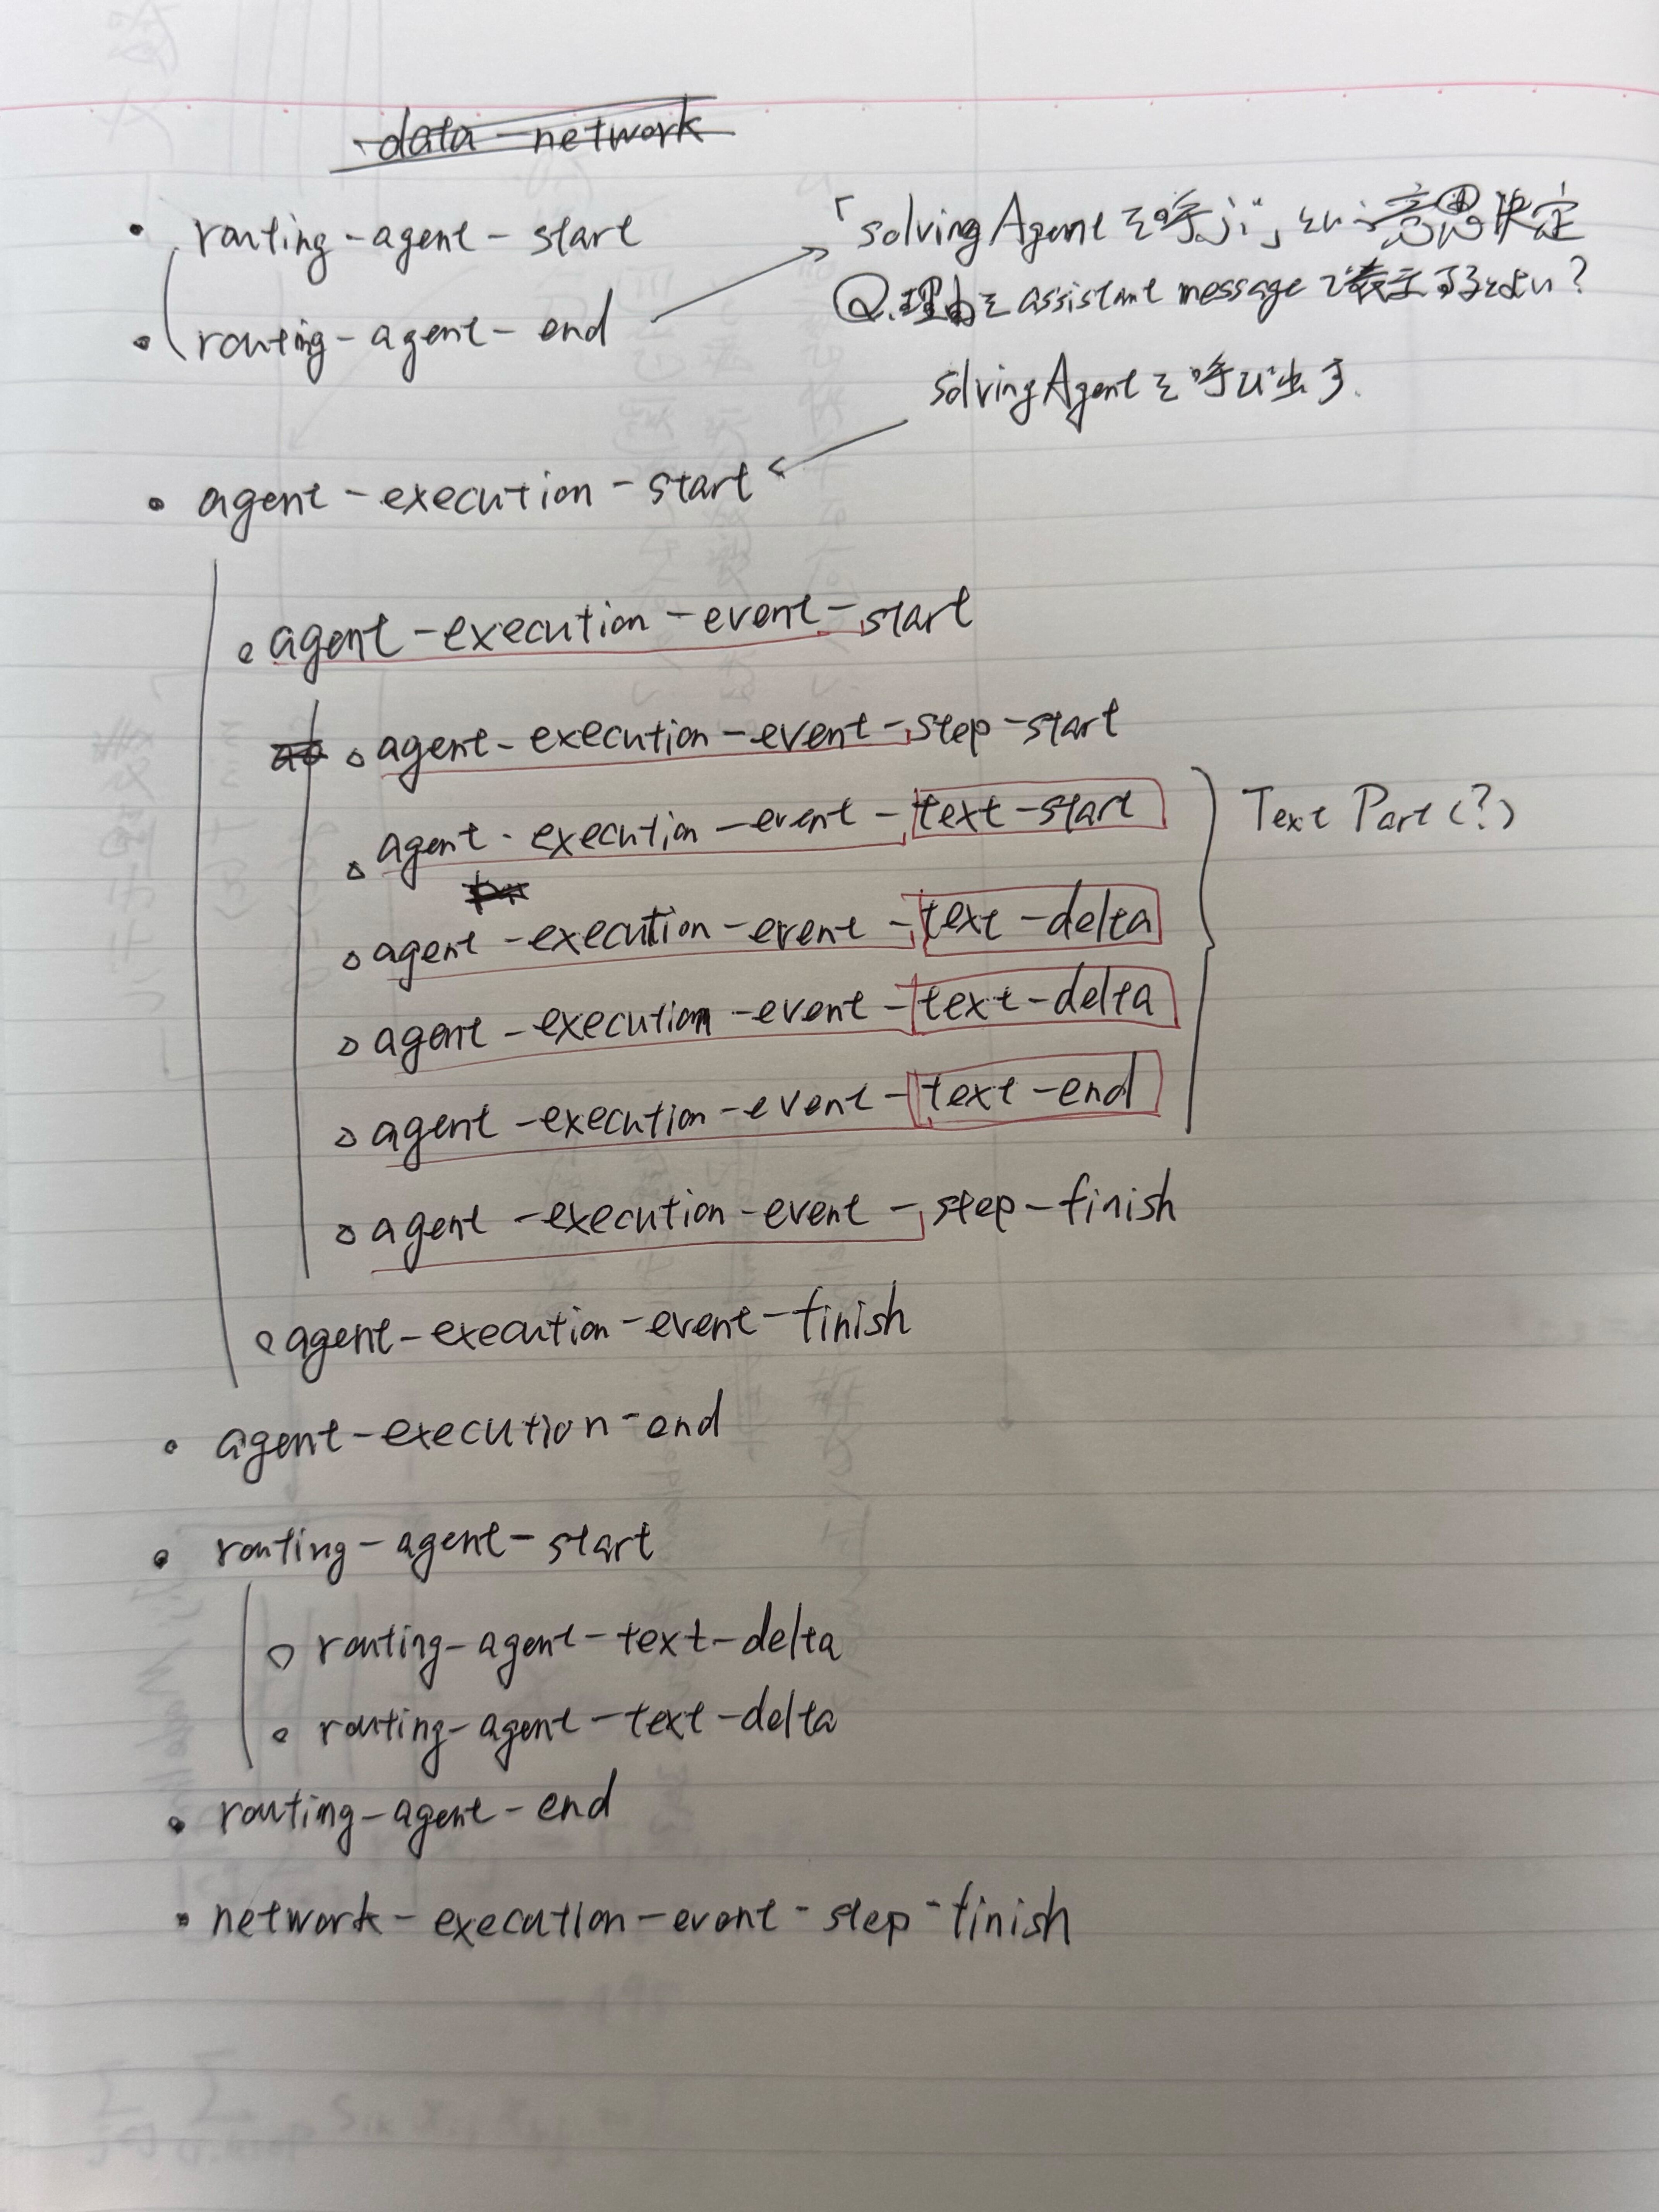 -data-network
・ routing-agent-start
「solvingAgentを呼ぶ」という意思決定
Q.理由をassistant messageで表示するとよい?
・ routing-agent-end
solvingAgentを呼び出す.
・ agent-execution-start
○ agent-execution-event-start
○ agent-execution-event-step-start
○ agent-execution-event-text-start
Text Part(?)
○ agent-execution-event-text-delta
○ agent-execution-event-text-delta
○ agent-execution-event-text-end
○ agent-execution-event-step-finish
○ agent-execution-event-finish
・ agent-execution-end
・ routing-agent-start
○ routing-agent-text-delta
○ routing-agent-text-delta
・ routing-agent-end
・ network-execution-event-step-finish